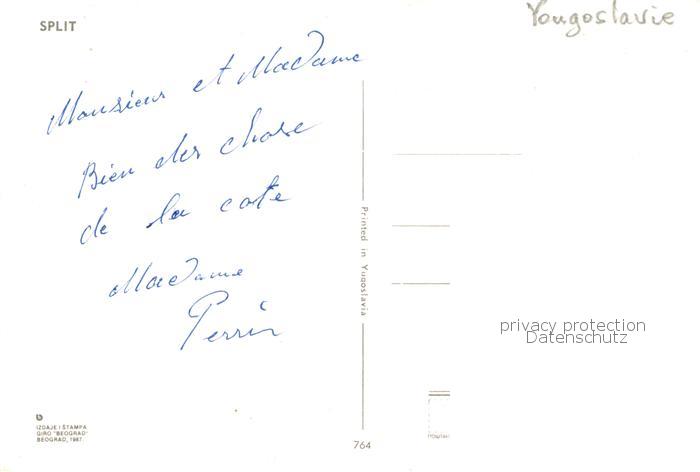 SPLIT
Yougoslavie
Monsieur et Madame
Bien des chose
de la cote
Madame
Perrin
Printed in Yugoslavia
privacy protection
Datenschutz
IZDAJE I ŠTAMPA
GIRO "BEOGRAD"
BEOGRAD, 1987.
764